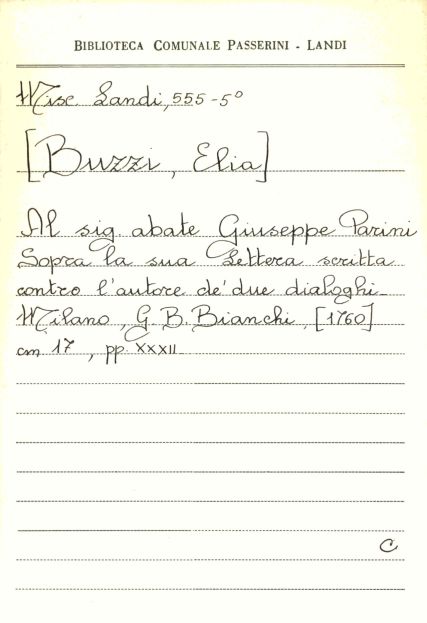 BIBLIOTECA COMUNALE PASSERINI - LANDI
Misc. Landi, 555-5º
[Buzzi, Elia]
Al sig. abate Giuseppe Parini
Sopra la sua Lettera scritta
contro l'autore de' due dialoghi_
Milano, G. B. Bianchi, [1760]
cm 17, pp. XXXII
C